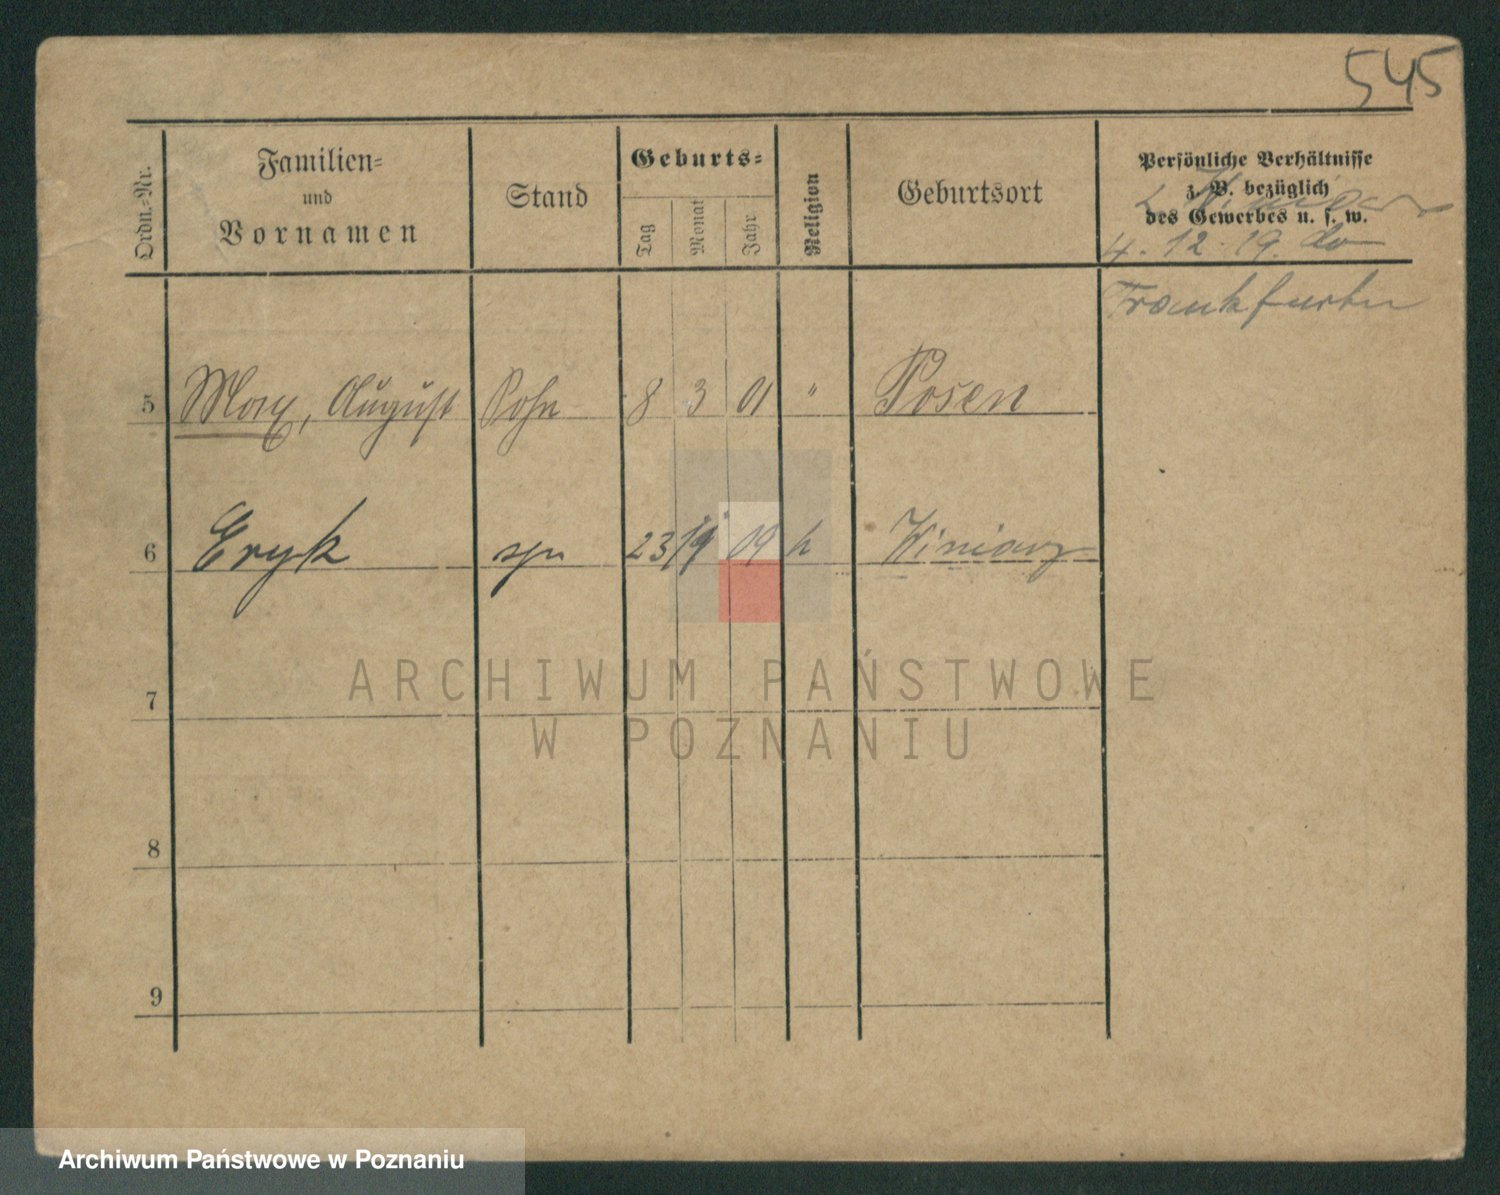 545
Ordn.-Nr.
Familien=
und
Vornamen
Stand
Geburts=
Tag
Monat
Jahr
Religion
Geburtsort
Persönliche Verhältnisse
z. B. bezüglich
des Gewerbes u. s. w.
4. 12. 19. do
Frankfurter
5 Max, August Sohn 8 3 01 " Posen
6 Eryk syn 23 09 Winiary
7
8
9
ARCHIWUM PAŃSTWOWE
W POZNANIU
Archiwum Państwowe w Poznaniu